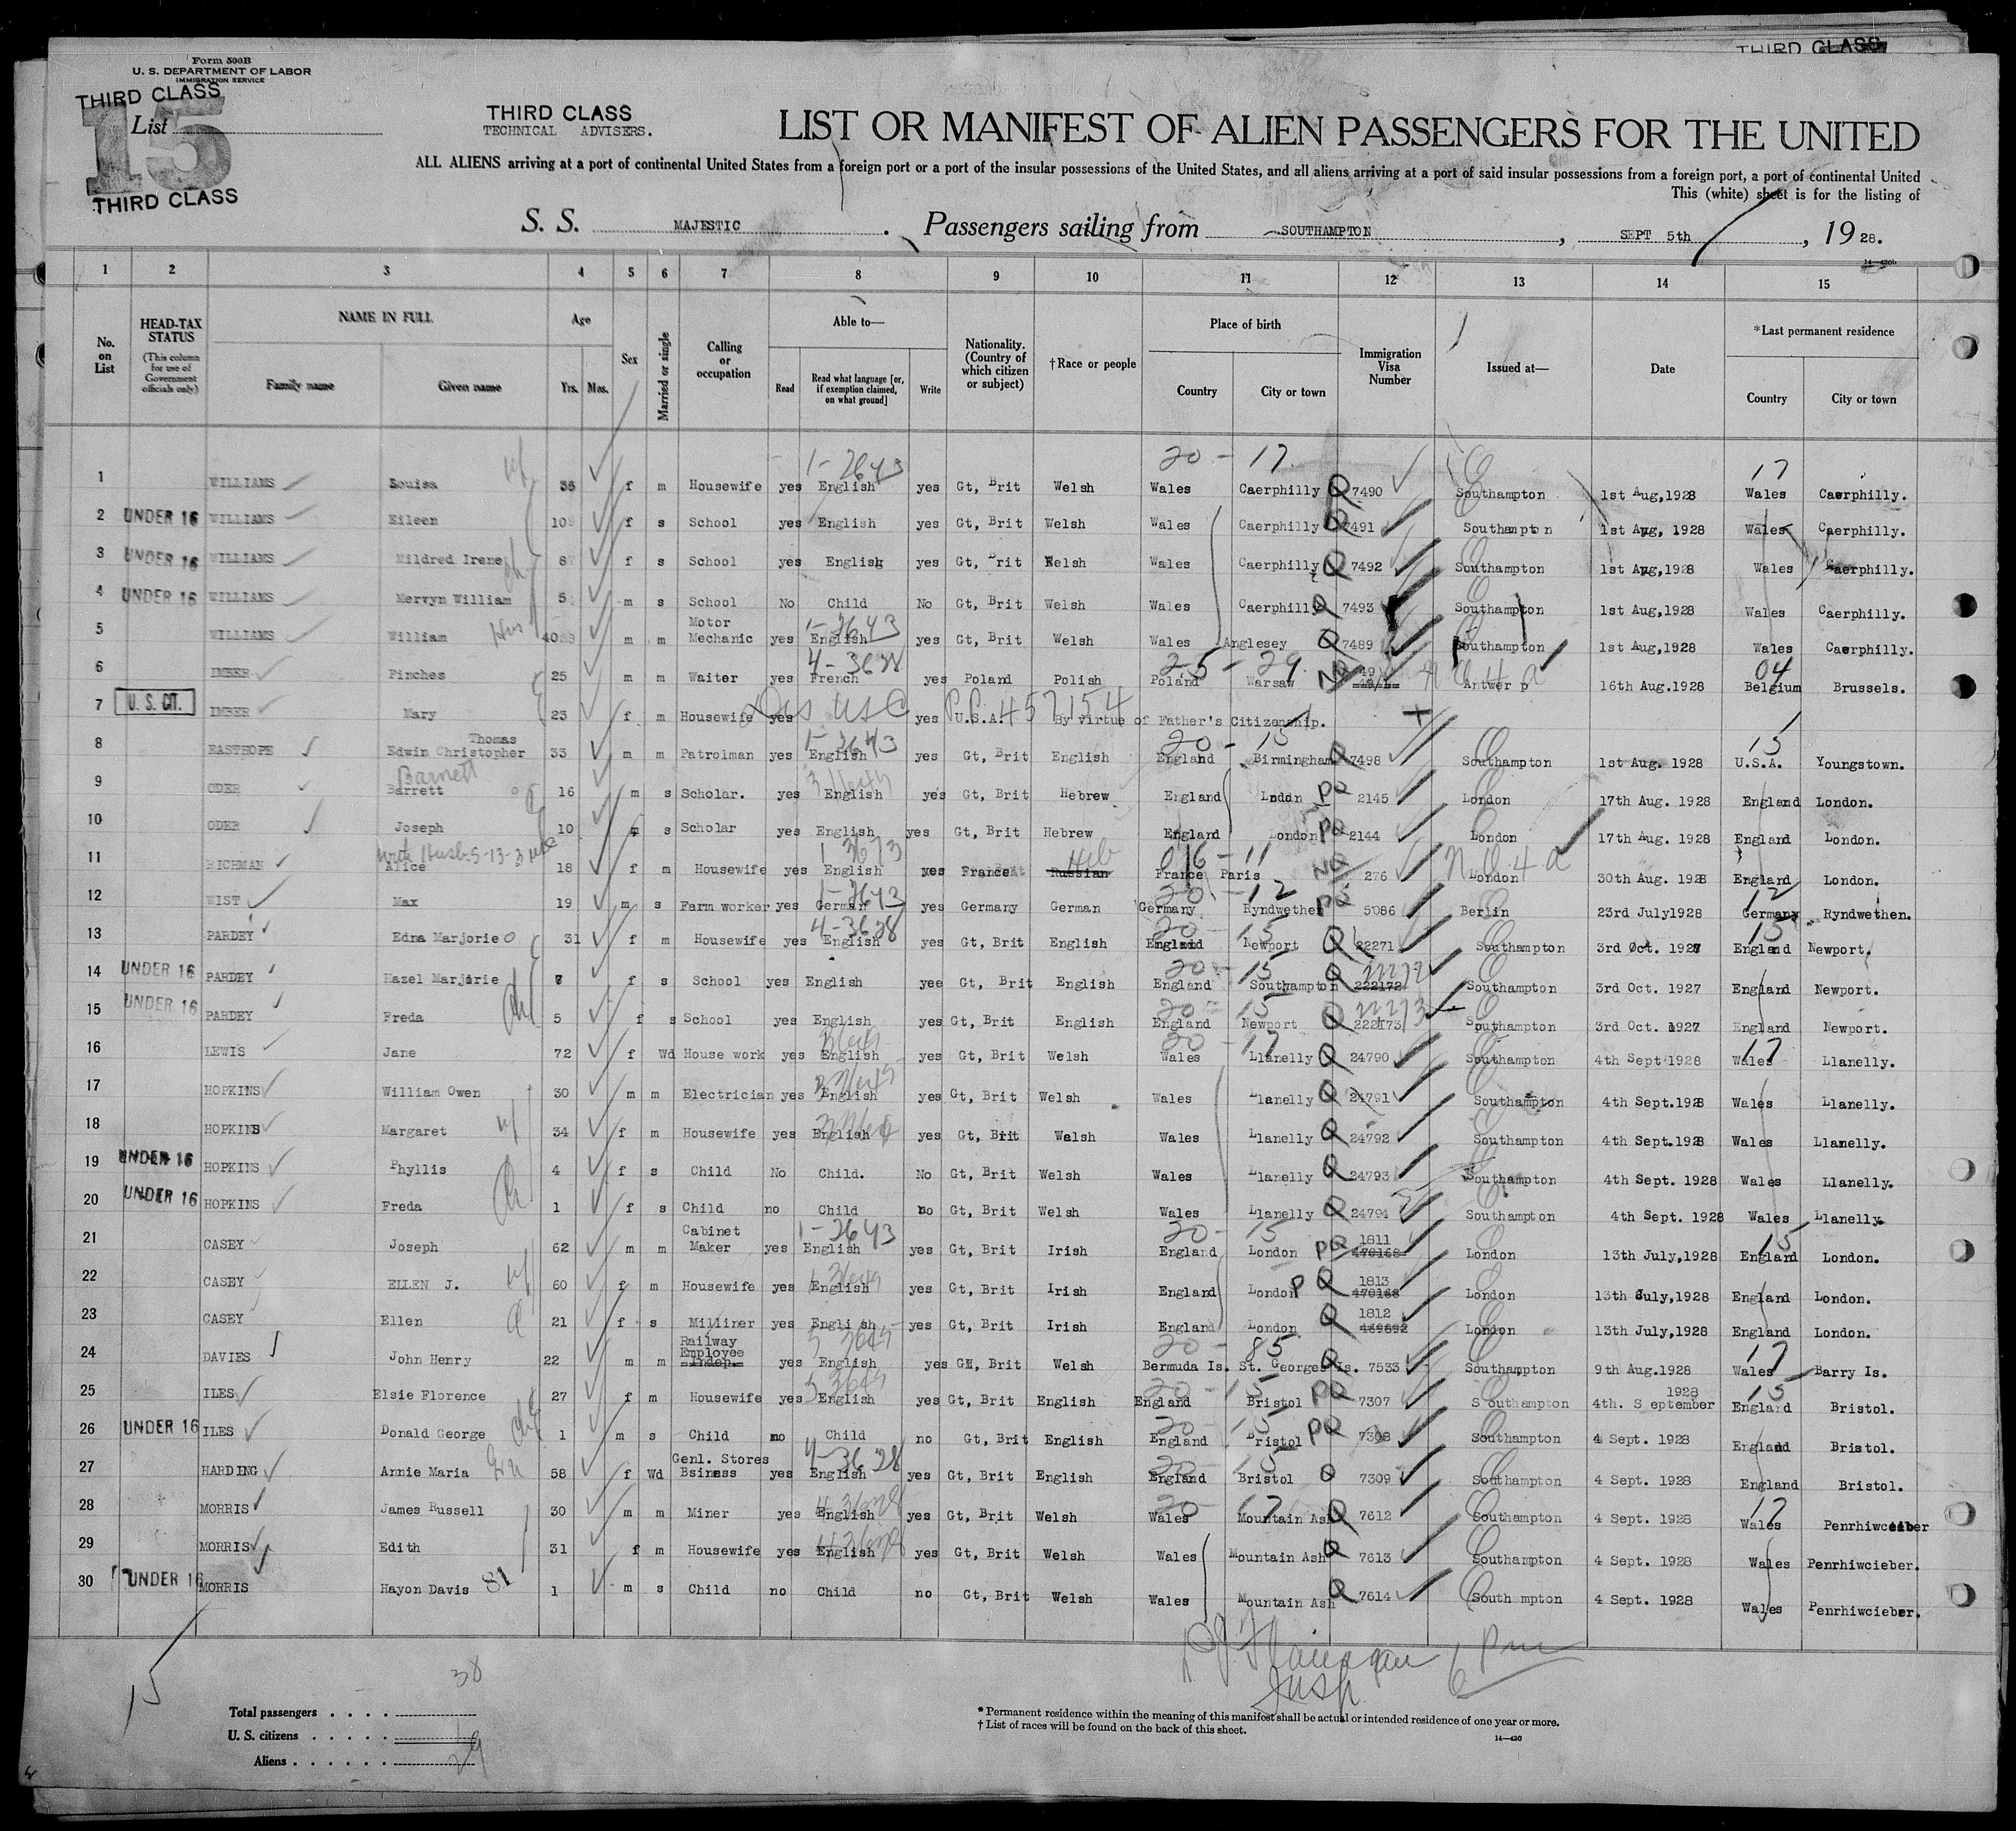 THIRD CLASS
Form 500B
U. S. DEPARTMENT OF LABOR
IMMIGRATION SERVICE
THIRD CLASS
List
15
THIRD CLASS
THIRD CLASS
TECHNICAL ADVISERS.
LIST OR MANIFEST OF ALIEN PASSENGERS FOR THE UNITED
ALL ALIENS arriving at a port of continental United States from a foreign port or a port of the insular possessions of the United States, and all aliens arriving at a port of said insular possessions from a foreign port, a port of continental United
This (white) sheet is for the listing of
S. S. MAJESTIC . Passengers sailing from SOUTHAMPTON , SEPT 5th , 1928.
1 2 3 4 5 6 7 8 9 10 11 12 13 14 15
No. on List
HEAD-TAX STATUS
(This column for use of Government officials only)
NAME IN FULL
Family name Given name
Age
Yrs. Mos.
Sex
Married or single
Calling or occupation
Able to—
Read
Read what language [or, if exemption claimed, on what ground]
Write
Nationality. (Country of which citizen or subject)
†Race or people
Place of birth
Country City or town
Immigration Visa Number
Issued at—
Date
*Last permanent residence
Country City or town
20 - 17 17
1 WILLIAMS Louisa 36 f m Housewife yes English yes Gt, Brit Welsh Wales Caerphilly Q 7490 Southampton 1st Aug,1928 Wales Caerphilly.
2 UNDER 16 WILLIAMS Eileen 10 f s School yes English yes Gt, Brit Welsh Wales Caerphilly Q 7491 Southampton 1st Aug, 1928 Wales Caerphilly.
3 UNDER 16 WILLIAMS Mildred Irene 8 f s School yes English yes Gt, Brit Welsh Wales Caerphilly Q 7492 Southampton 1st Aug,1928 Wales Caerphilly.
4 UNDER 16 WILLIAMS Mervyn William 5 m s School No Child No Gt, Brit Welsh Wales Caerphilly Q 7493 Southampton 1st Aug,1928 Wales Caerphilly.
5 WILLIAMS William 40 m m Motor Mechanic yes English yes Gt, Brit Welsh Wales Anglesey Q 7489 Southampton 1st Aug,1928 Wales Caerphilly.
6 IMBER Pinches 25 m m Waiter yes French yes Poland Polish Poland Warsaw Antwerp 16th Aug.1928 Belgium Brussels.
7 U. S. CIT. IMBER Mary 23 f m Housewife yes yes U.S.A. By virtue of Father's Citizenship.
8 EASTHOPE Edwin Christopher Thomas 33 m m Patrolman yes English yes Gt, Brit English England Birmingham Q 7498 Southampton 1st Aug. 1928 U.S.A. Youngstown.
Barnett
9 ODER Barrett 16 m s Scholar. yes English yes Gt, Brit Hebrew England London PQ 2145 London 17th Aug. 1928 England London.
10 ODER Joseph 10 m s Scholar yes English yes Gt, Brit Hebrew England London PQ 2144 London 17th Aug. 1928 England London.
11 RICHMAN Alice 18 f m Housewife yes English yes France Russian Heb France Paris NQ 276 London 30th Aug. 1928 England London.
12 WIST Max 19 m s Farm worker yes German yes Germany German Germany Ryndwethen PQ 5086 Berlin 23rd July1928 Germany Ryndwethen.
13 PARDEY Edna Marjorie 31 f m Housewife yes English yes Gt, Brit English England Newport Q 22271 Southampton 3rd Oct. 1927 England Newport.
14 UNDER 16 PARDEY Hazel Marjorie 7 f s School yes English yee Gt, Brit English England Southampton Q 222172 Southampton 3rd Oct. 1927 England Newport.
15 UNDER 16 PARDEY Freda 5 f s School yes English yes Gt, Brit English England Newport Q 222173 Southampton 3rd Oct. 1927 England Newport.
16 LEWIS Jane 72 f Wd House work yes English yes Gt, Brit Welsh Wales Llanelly Q 24790 Southampton 4th Sept 1928 Wales Llanelly.
17 HOPKINS William Owen 30 m m Electrician yes English yes Gt, Brit Welsh Wales Llanelly Q 24791 Southampton 4th Sept.1928 Wales Llanelly.
18 HOPKINS Margaret 34 f m Housewife yes English yes Gt, Brit Welsh Wales Llanelly Q 24792 Southampton 4th Sept.1928 Wales Llanelly.
19 UNDER 16 HOPKINS Phyllis 4 f s Child No Child. No Gt, Brit Welsh Wales Llanelly Q 24793 Southampton 4th Sept. 1928 Wales Llanelly.
20 UNDER 16 HOPKINS Freda 1 f s Child no Child no Gt, Brit Welsh Wales Llanelly Q 24794 Southampton 4th Sept. 1928 Wales Llanelly
21 CASEY Joseph 62 m m Cabinet Maker yes English yes Gt, Brit Irish England London PQ 1811 470168 London 13th July,1928 England London.
22 CASEY ELLEN J. 60 f m Housewife yes English yes Gt, Brit Irish England London PQ 1813 470168 London 13th July,1928 England London.
23 CASEY Ellen 21 f s Milliner yes English yes Gt, Brit Irish England London Q 1812 469892 London 13th July,1928 England London.
24 DAVIES John Henry 22 m m Railway Employee yes English yes Gt, Brit Welsh Bermuda Is. St. Georges Is. Q 7533 Southampton 9th Aug.1928 Wales Barry Is.
25 ILES Elsie Florence 27 f m Housewife yes English yes Gt, Brit English England Bristol PQ 7307 Southampton 4th. September 1928 England Bristol.
26 UNDER 16 ILES Donald George 1 m s Child no Child no Gt, Brit English England Bristol PQ 7308 Southampton 4 Sept. 1928 England Bristol.
27 HARDING Annie Maria 58 f Wd Genl. Stores Bsiness yes English yes Gt, Brit English England Bristol Q 7309 Southampton 4 Sept. 1928 England Bristol.
28 MORRIS James Russell 30 m m Miner yes English yes Gt, Brit Welsh Wales Mountain Ash Q 7612 Southampton 4 Sept. 1928 Wales Penrhiwceiber
29 MORRIS Edith 31 f m Housewife yes English yes Gt, Brit Welsh Wales Mountain Ash Q 7613 Southampton 4 Sept. 1928 Wales Penrhiwcieber.
30 UNDER 16 MORRIS Hayon Davis 81 1 m s Child no Child no Gt, Brit Welsh Wales Mountain Ash Q 7614 South mpton 4 Sept. 1928 Wales Penrhiwcieber.
15
Insp.
Total passengers . . . .
U. S. citizens . . . . .
Aliens . . . . . . 29
* Permanent residence within the meaning of this manifest shall be actual or intended residence of one year or more.
† List of races will be found on the back of this sheet.
14—430